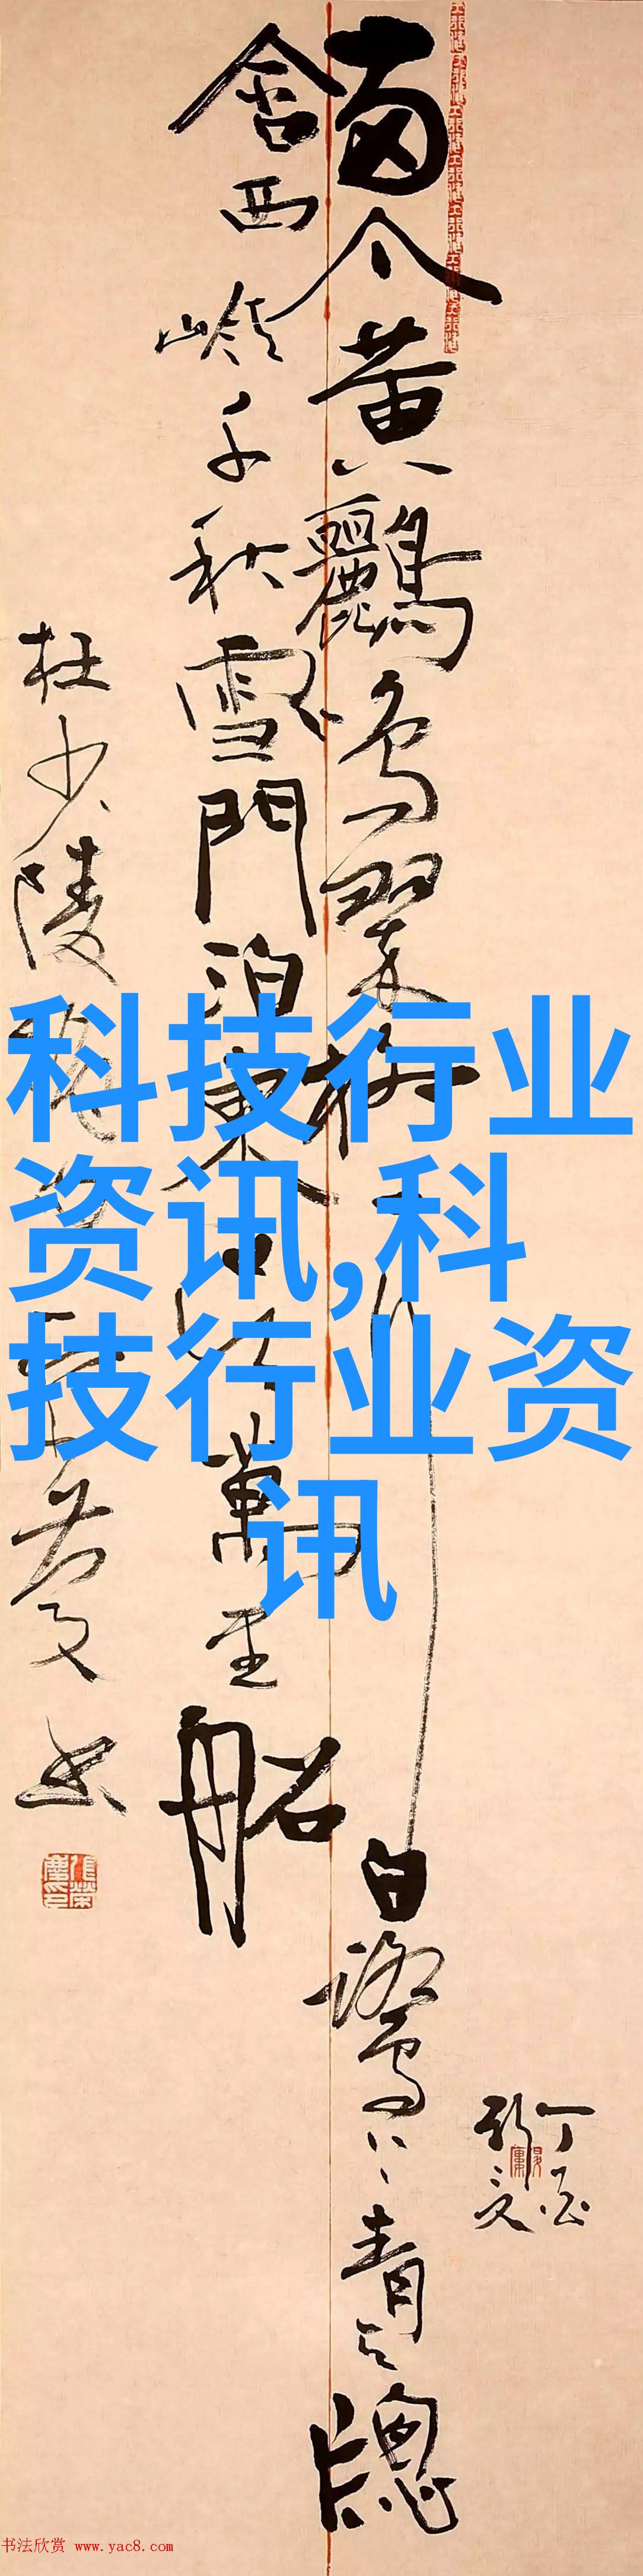 两个黄鸝鳴翠柳一行白鷺上青天牕
含西嶺千秋雪門泊東吳萬里船
杜少陵絕句
慶書
丁酉
科技行业
资讯,科
技行业资
讯
书法欣赏 www.yac8.com